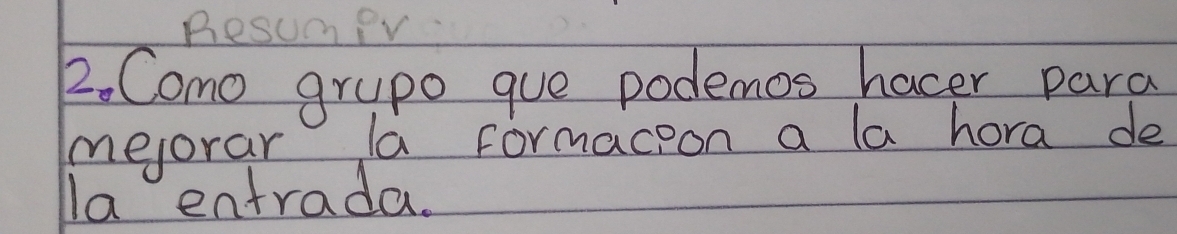 Resumir
2. Como grupo que podemos hacer para
mejorar la formacion a la hora de
la entrada.